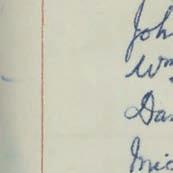 Joh
Wm
Da
Mic